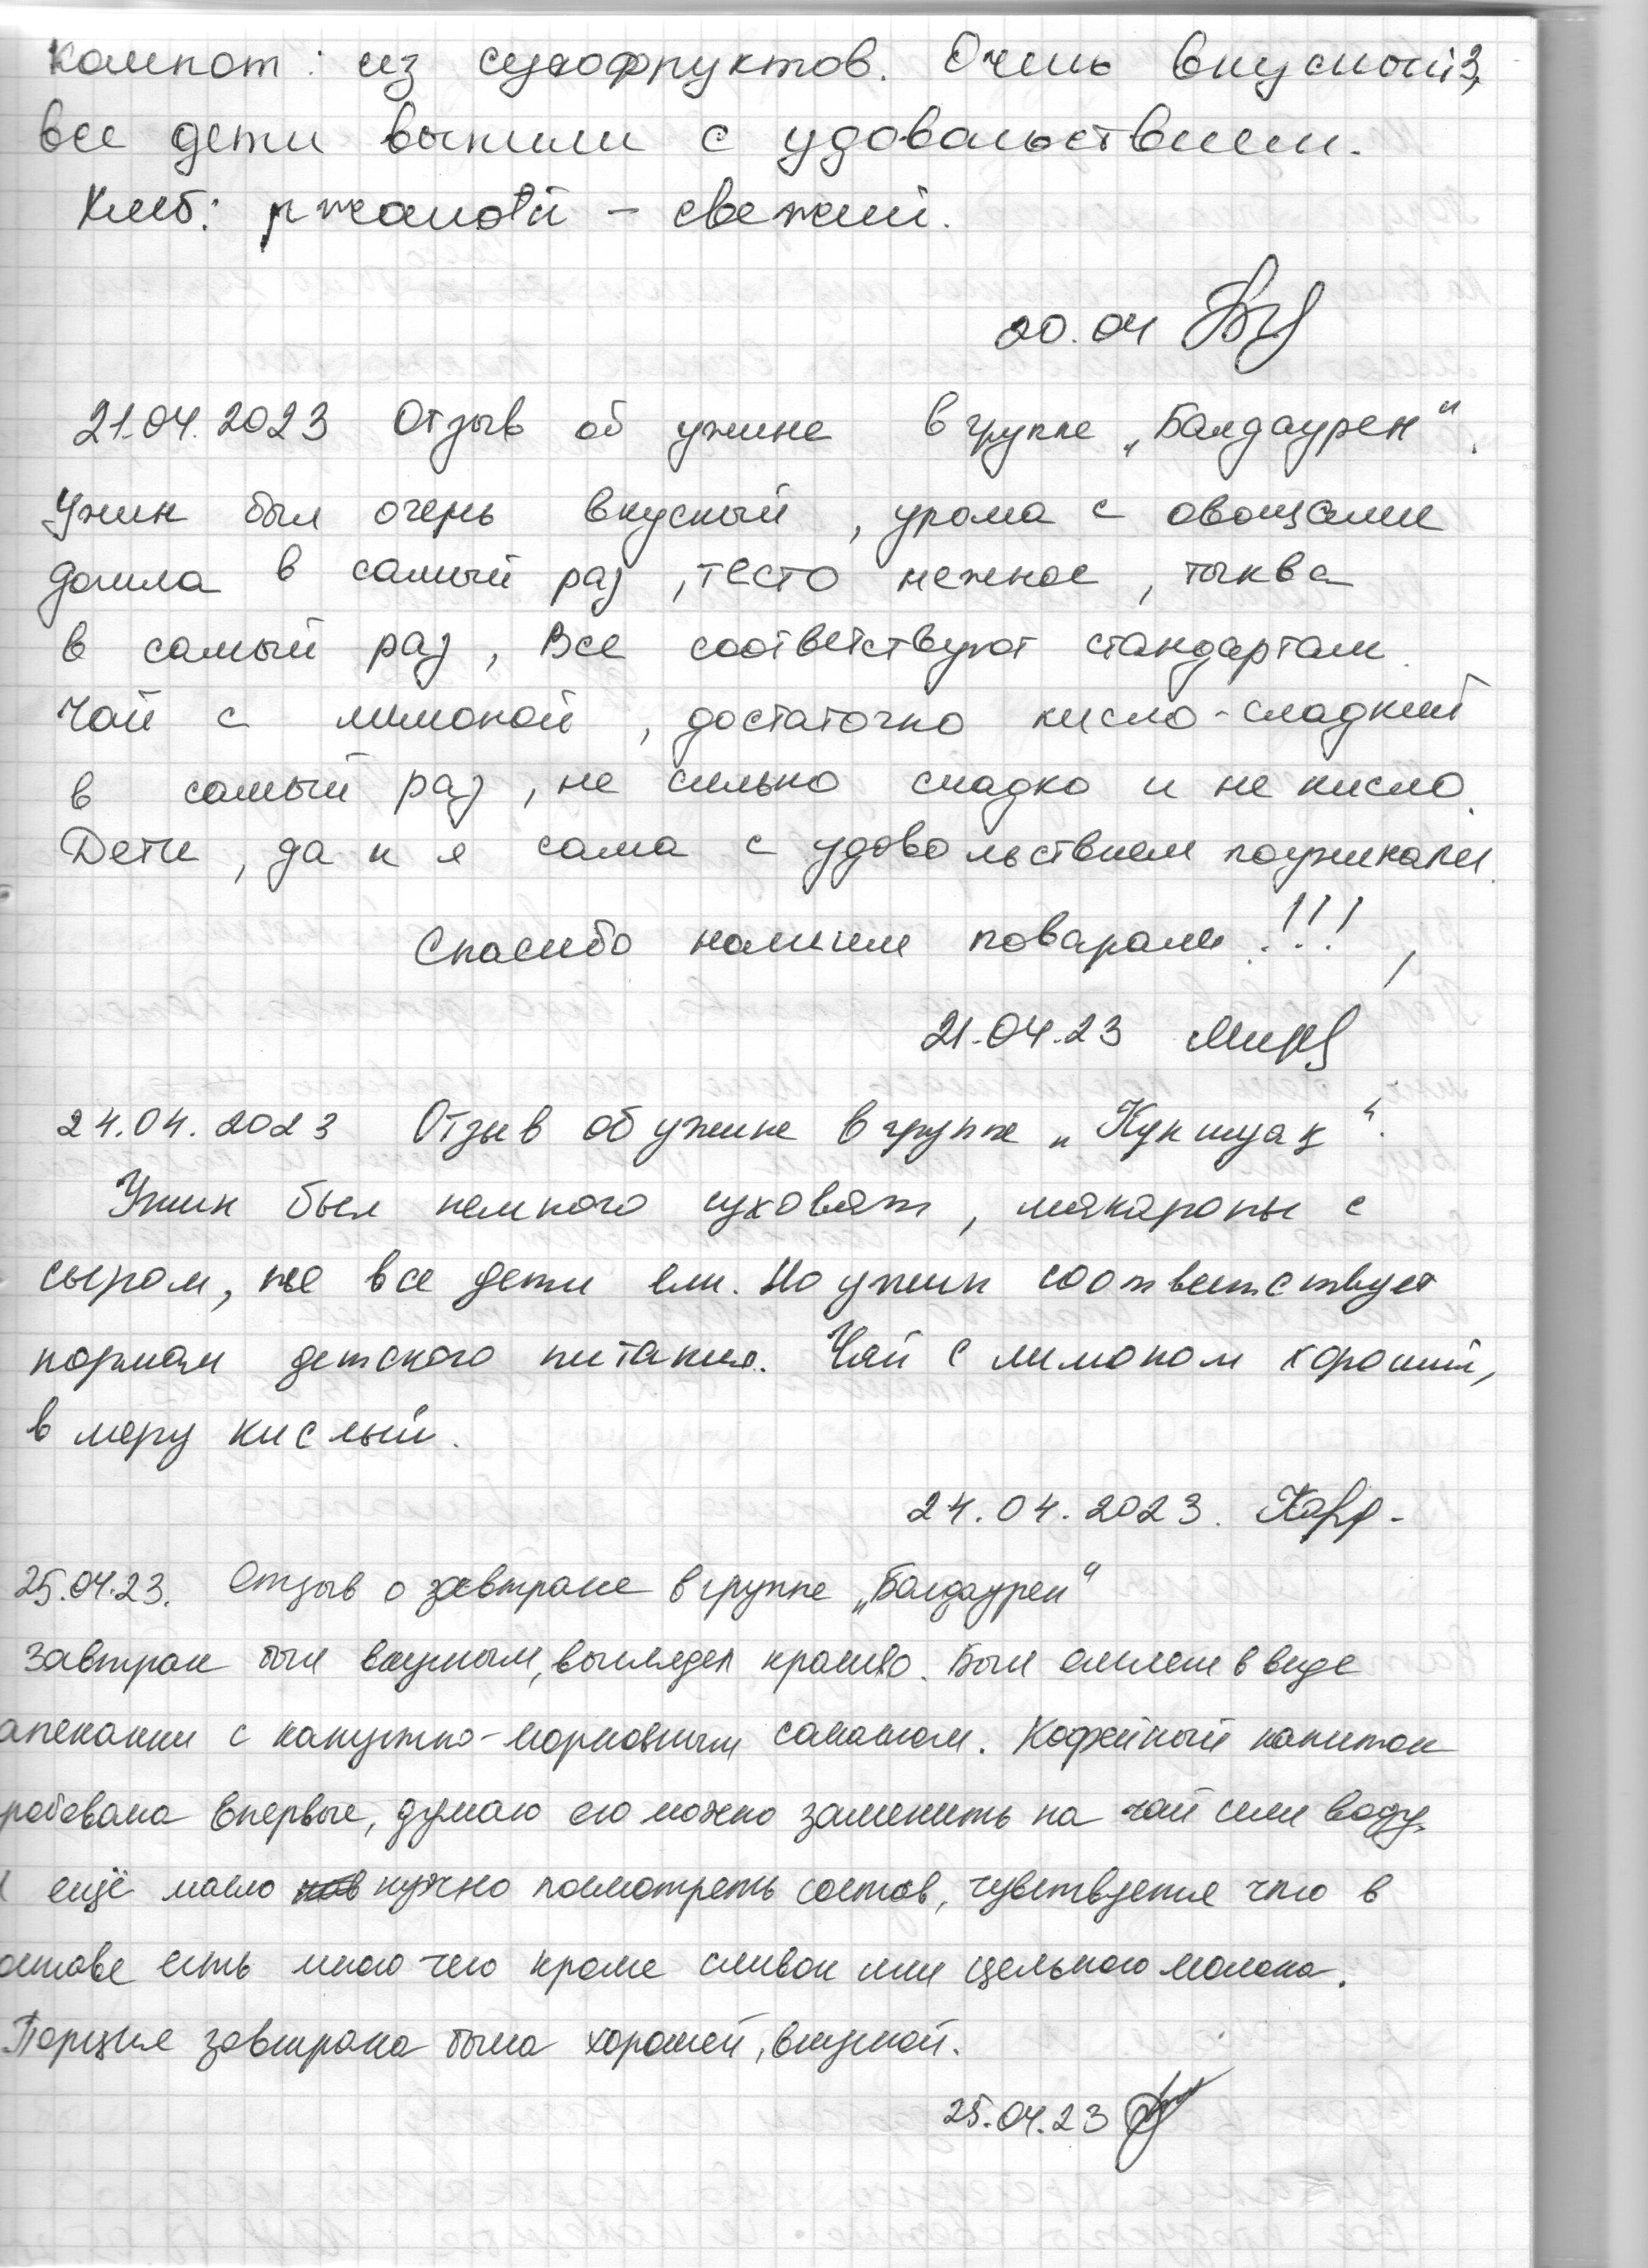 Компот: из сухофруктов. Очень вкусный,
все дети выпили с удовольствием.
Хлеб: ржаной - свежий.
20.04
21.04.2023 Отзыв об ужине в группе „Балдаурен“.
Ужин был очень вкусный, урома с овощами
дошла в самый раз, тесто нежное, тыква
в самый раз, Все соответствуют стандартам.
Чай с лимоной, достаточно кисло-сладкий
в самый раз, не сильно сладко и не кисло.
Дети, да и я сама с удовольствием поужинали.
Спасибо нашим поварам!!!
21.04.23
24.04.2023 Отзыв об ужине в группе „Кунтуак“.
Ужин был немного суховат, макароны с
сыром, не все дети ели. Но ужин соответствует
нормам детского питания. Чай с лимоном хороший,
в меру кислый.
24.04.2023.
25.04.23. Отзыв о завтраке в группе „Балдаурен“
Завтрак был вкусным, выглядел красиво. Был омлет в виде
апеканки с капустно-морковным салатом. Кофейный напиток
робовала впервые, думаю его можно заменить на чай или воду.
ещё масло нужно посмотреть состав, чувствуется что в
оставе есть много чего кроме сливок или цельного молока.
Порция завтрака была хорошей, вкусной.
25.04.23